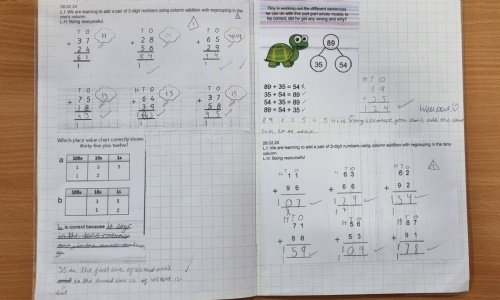 28.02.24
L.I: We are learning to add a pair of 2-digit numbers using column addition with regrouping in the
one's column.
L.H: Being resourceful
T O
3 7
+ 2 4
6 1
1
T O
2 8
+ 5 6
1
T O
6 5
+ 2 9
9 4
1
11
T O
7 5
+ 1 8
1
H T O
6 4
+ 3 9
T O
3 7
+ 5 8
9 5
1
12
13
15
Which place value chart correctly shows
thirty-five plus twelve?
a
100s 10s 1s
1 3 5
1 2
b
100s 10s 1s
3 5
1 2
is correct because
35 in the first line
in the second line 12
Tiny is working out the different sentences
he can do with this part-part-whole model. Is
he correct, did he get any wrong and why?
89
35 54
89 + 35 = 54
35 + 54 = 89
54 + 35 = 89
89 = 54 + 35
H T O
8 9
+ 3 5
1 2 4
Well done
89 + 35 = 54 is wrong because you can't add the
28.02.24
L.I: We are learning to add a pair of 2-digit numbers using column addition with regrouping in the tens
column.
L.H: Being resourceful
H T O
1 1
+ 9 6
1 0 7
1
H T O
6 3
+ 6 6
1 2 9
1
H T O
6 2
+ 9 2
1 5 4
1
H T O
7 1
+ 8 8
1 5 9
1
H T O
5 6
+ 5 3
1 0 9
1
H T O
8 7
+ 9 1
1 7 8
1